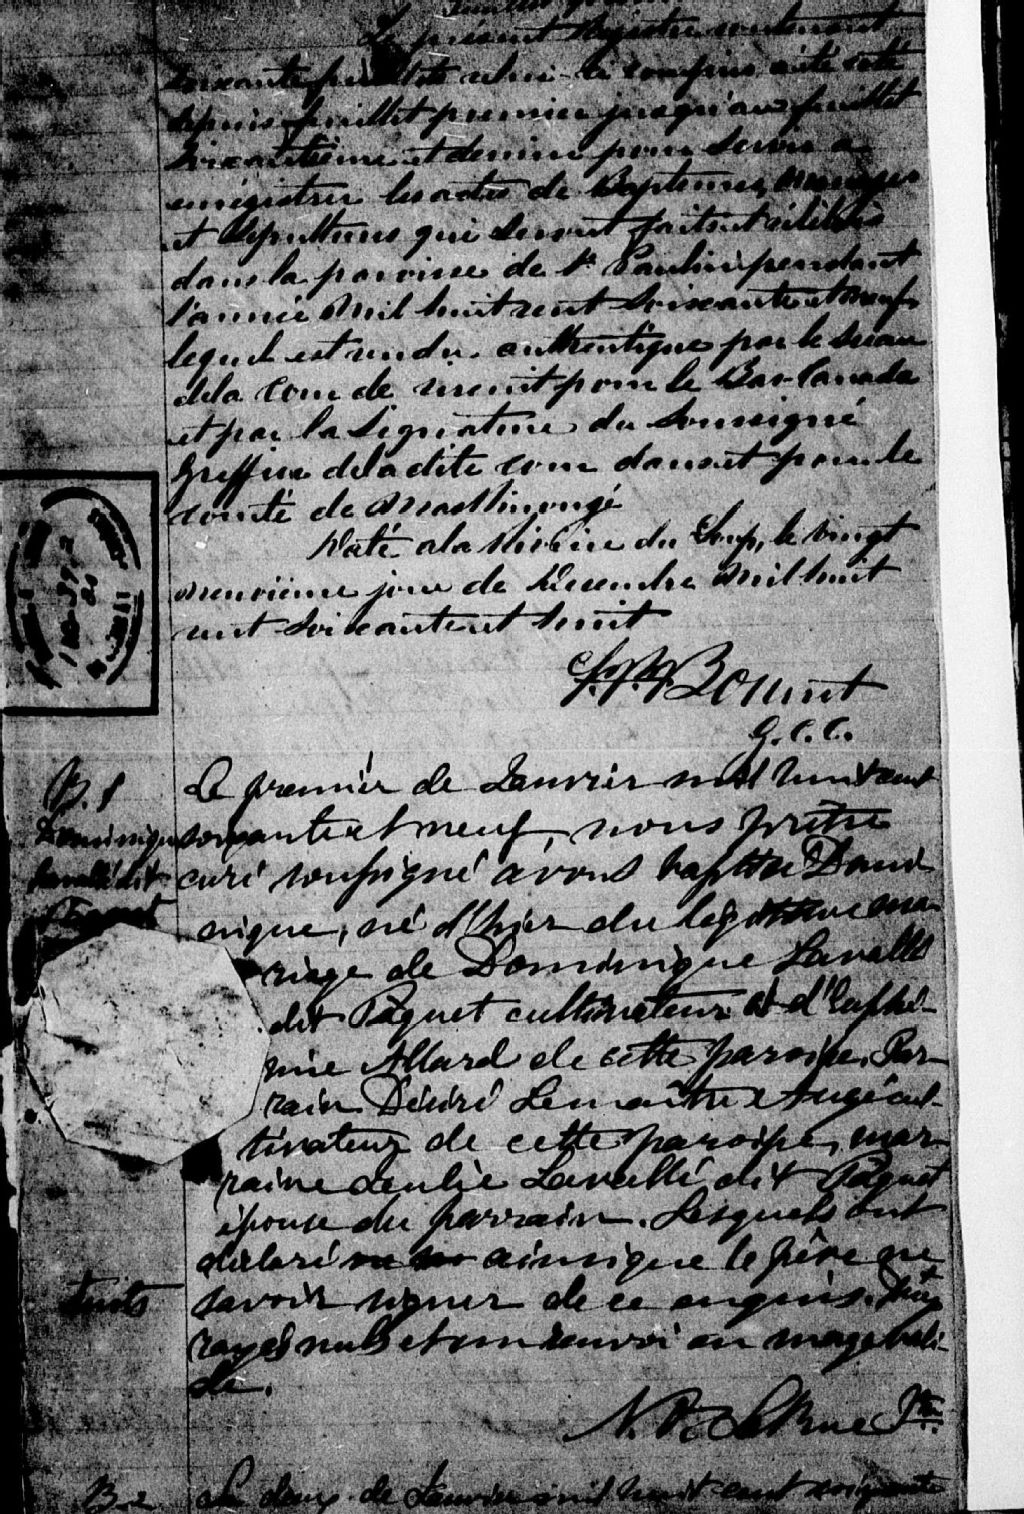 Le présent Registre contenant
soixante feuillets celui-ci compris a été coté
depuis feuillet premier jusqu'au feuillet
soixantième et dernier pour servir a
enrégistrer les actes de Baptemes, Mariages
et Sépultures qui seront faits et célébrés
dans la paroisse de St Paulin pendant
l'année Mil huit cent soixante et neuf,
lequel est rendu authentique par le sceau
de la Cour de circuit pour le Bas-Canada
et par la Signature du Soussigné
Greffier de la dite cour dans et pour le
comté de Maskinongé
Daté a la Rivière du Loup, le vingt
neuvième jour de Décembre Mil huit
cent soixante et huit
G.C.C.
B. 1
Dominique
Lavallé dit
Paquet
Le premier de Janvier mil huit cent
soixante et neuf, nous prêtre
curé soussigné avons baptisé Domi-
nique, né d'hier du légitime ma-
riage de Dominique Lavallé
dit Paquet cultivateur et d'Euphé-
mie Allard de cette paroisse. Par-
rain Désiré Lemaître Augé cul-
tivateur de cette paroisse, mar-
raine Lavallé dit Paquet
épouse du parrain. Lesquels ont
déclaré ainsi que le père ne
savoir signer de ce enquis.
rayés nuls et un renvoi en marge vali-
de.
B. 2
Le deux de Janvier mil huit cent soixante